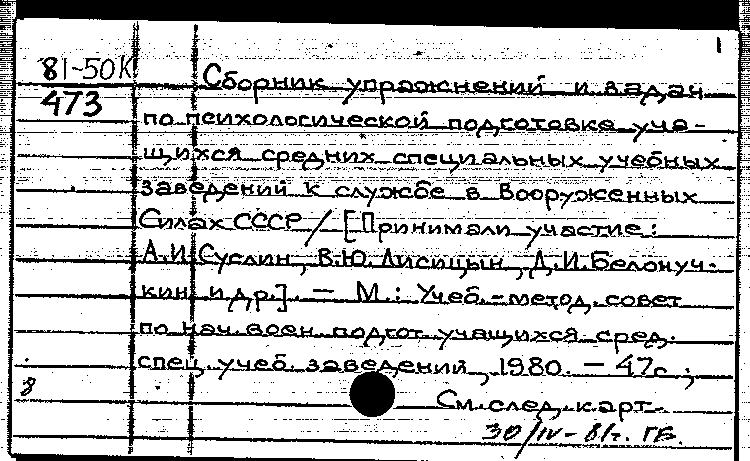 1
81-50К Сборник упражнений и задач
473 по психологической подготовке уча-
щихся средних специальных учебных
заведений к службе в Вооруженных
Силах СССР / [Принимали участие:
А.И.Суслин, В.Ю.Лисицын, Д.И.Белонуч-
кин и др.]. – М.: Учеб.-метод. совет
по нач. воен. подгот. учащихся сред.
спец. учеб. заведений, 1980. – 47с.;
8 См. след. карт.
30/IV-81г. ГБ.